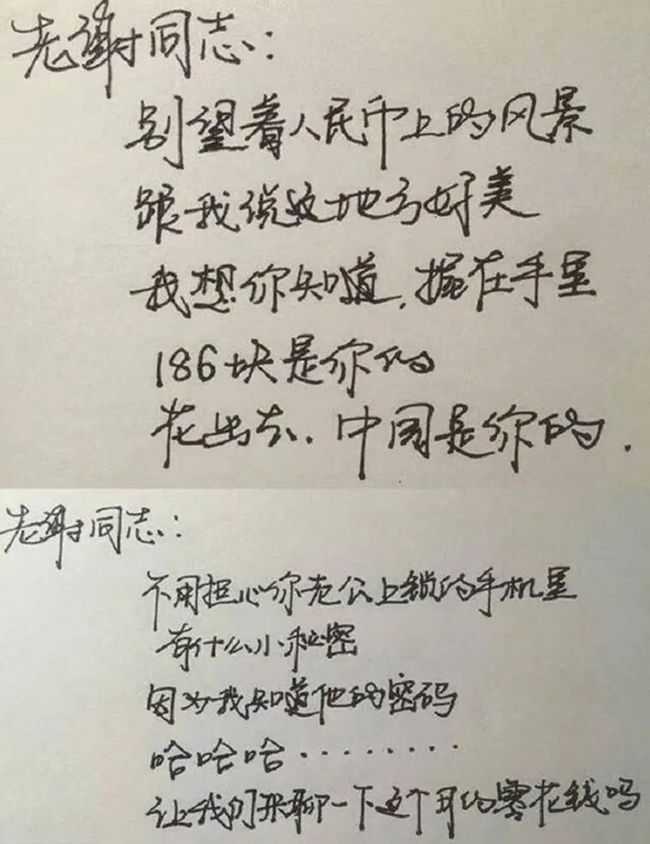 老谢同志：
别望着人民币上的风景
跟我说这地方好美
我想你知道，握在手里
186块是你的
花出去，中国是你的．
老谢同志：
不用担心你老公上锁的手机里
有什么小秘密
因为我知道他的密码
哈哈哈·········
让我们来聊一下这个月的零花钱吗